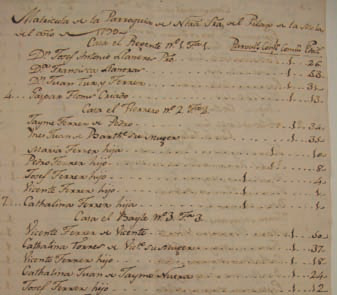 Matricula de la Parroquia de Ntra Sra del Pilar de la Mola
del año de 1794
Casa el Regente nº 1. Fª 1. Parvulls Conf. Comun Edad
Dn Josef Antonio Llaneras Pro 1 26
Dª Francisca Llaneras 1 63
Dª Juan Tur y Ferrer 1 31
4 Gaspar Criado 1 13
Casa el Vicario nº 2. Fª 2.
Jayme Ferrer de Pedro 1 34
Ines Juan de su Muger 1 33
Maria Ferrer hija 1 10
Pedro Ferrer hijo 1 8
Josef Ferrer hijo 1 4
Vicente Ferrer hijo 1
7 Cathalina Ferrer hija 1
Casa el Bayle nº 3. Fª 3.
Vicente Ferrer de Vicente 1
Cathalina Torres de Vte su Muger 1 37
Vicente Ferrer hijo 1 18
Cathalina Juan de Jayme Nuera 1 24
Josef Ferrer hijo 1 12